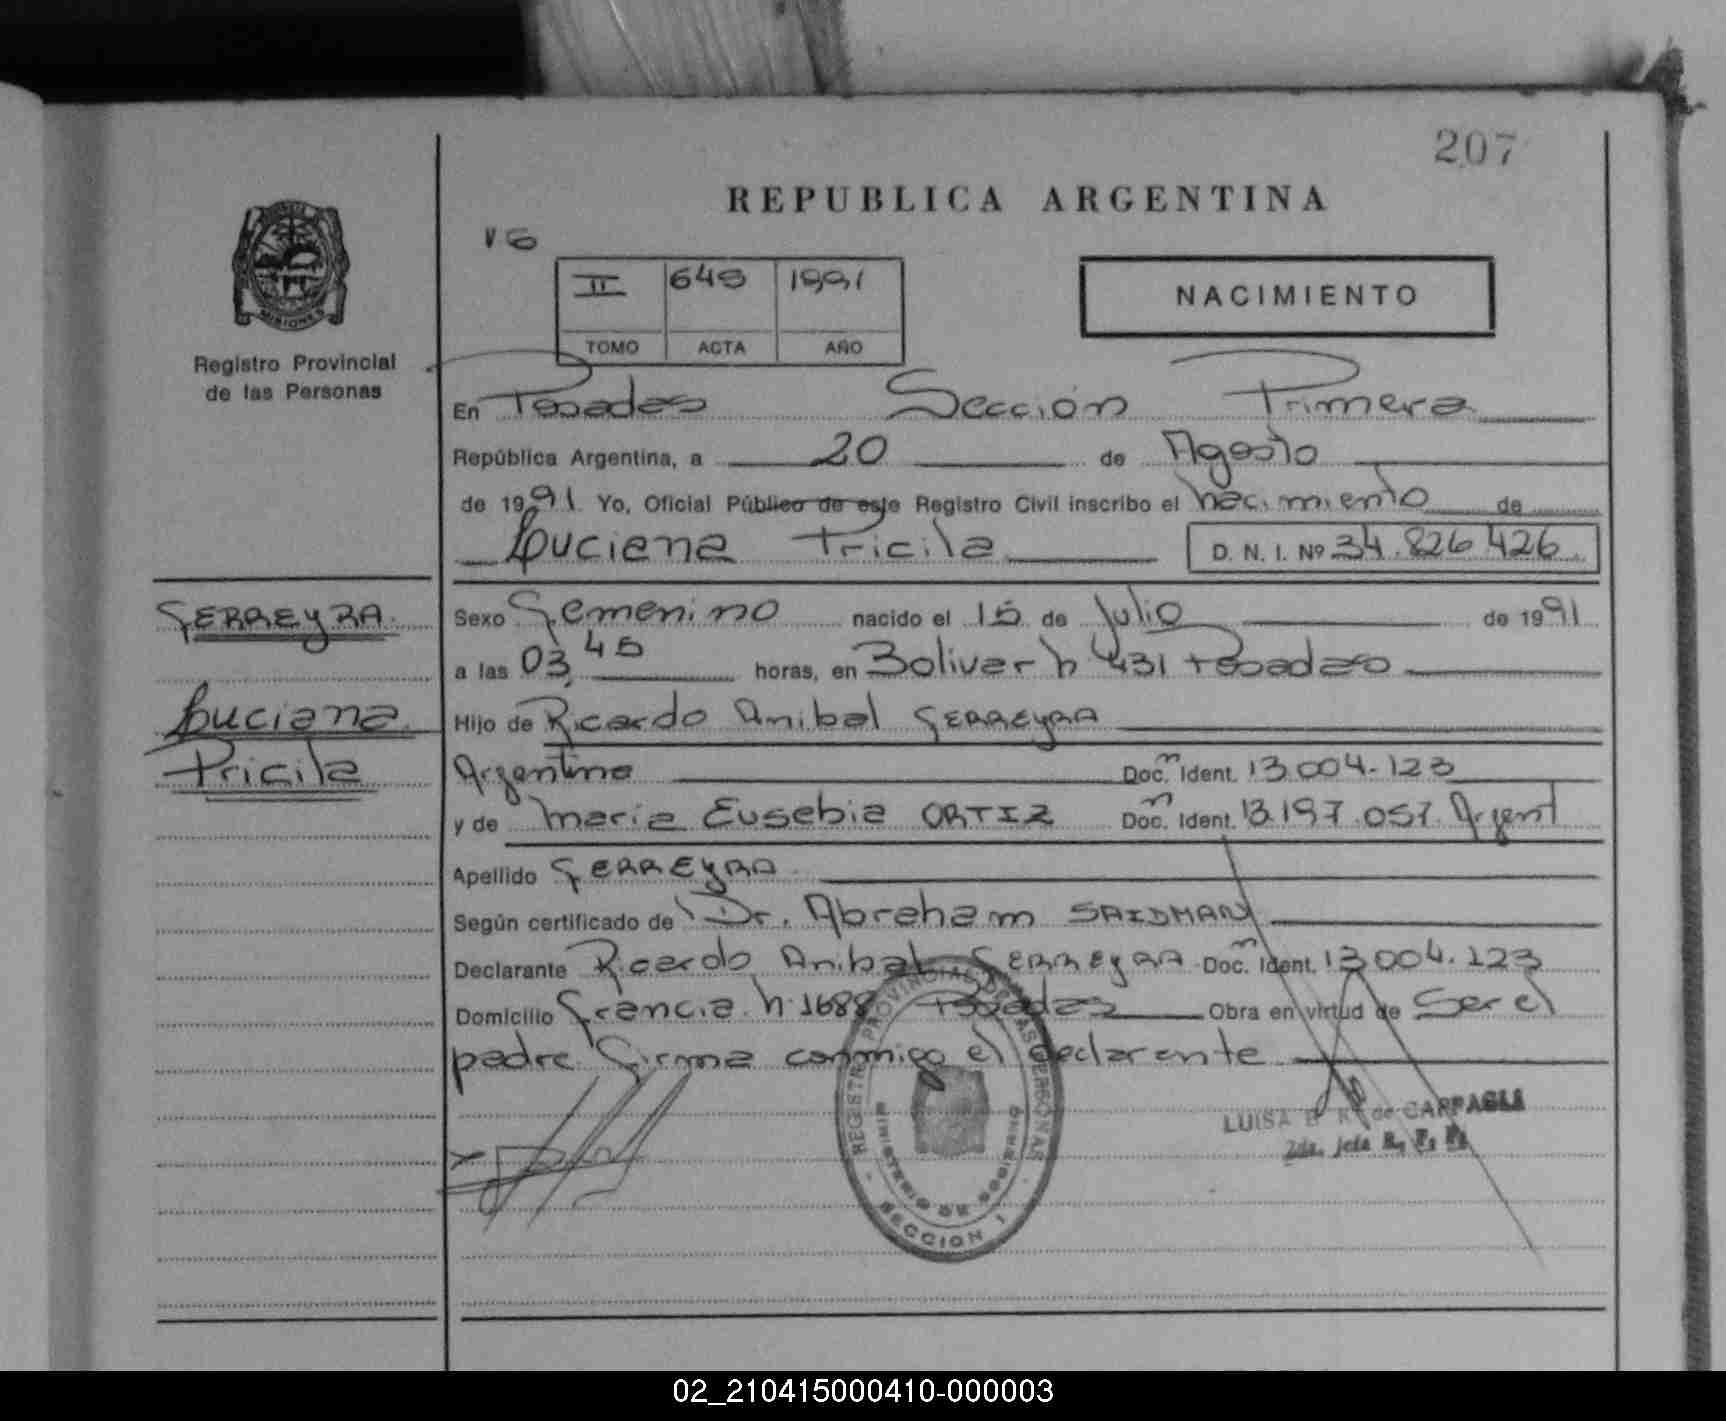 207
REPUBLICA ARGENTINA
MISIONES
Registro Provincial
de las Personas
II 649 1991
TOMO ACTA AÑO
NACIMIENTO
En Posadas Sección Primera
República Argentina, a 20 de Agosto
de 1991 Yo, Oficial Público de este Registro Civil inscribo el nacimiento de
Luciana Pricila D. N. I. Nº 34.826.426
FERREYRA
Luciana
Pricila
Sexo Femenino nacido el 15 de Julio de 1991
a las 03,45 horas, en Bolivar n 431 Posadas
Hijo de Ricardo Anibal FERREYRA
Argentino Doc. Ident. 13.004.123
y de Maria Eusebia ORTIZ Doc. Ident. 13.197.057. Argent
Apellido FERREYRA
Según certificado de Dr. Abraham SAIDMAN
Declarante Ricardo Anibal FERREYRA Doc. Ident. 13.004.123
Domicilio Francia n. 1688 Posadas Obra en virtud de Ser el
padre Firma conmigo el declarante
REGISTRO PROVINCIAL DE LAS PERSONAS
MINISTERIO DE GOBIERNO
SECCION 1
LUISA B. de
2da. Jefa R. P. P.
02_210415000410-000003